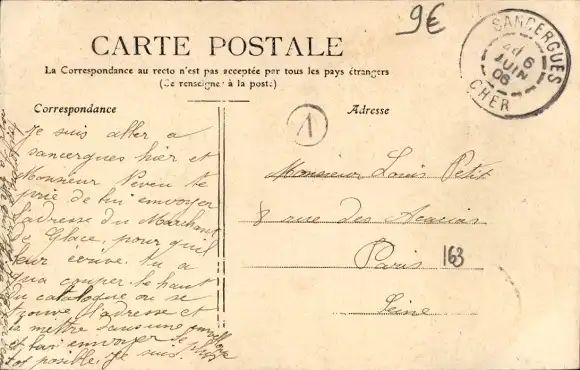 9€
SANCERGUES
6
JUIN
06
CHER
CARTE POSTALE
La Correspondance au recto n'est pas acceptée par tous les pays étrangers
(Se renseigner à la poste)
Correspondance
Adresse
1
Je suis aller a
sancergues hier et
Monsieur Neveu te
prie de lui envoyer
l'adresse du Marchand
de Glace, pour qu'il
leur écrive. tu a
qua couper le haut
du catalogue ou se
trouve l'adresse et
la mettre dans une enveloppe
et lui envoyer le plus
tot posible. Je suis
Monsieur Louis Petit
8 rue des Acacias
Paris
163
Seine